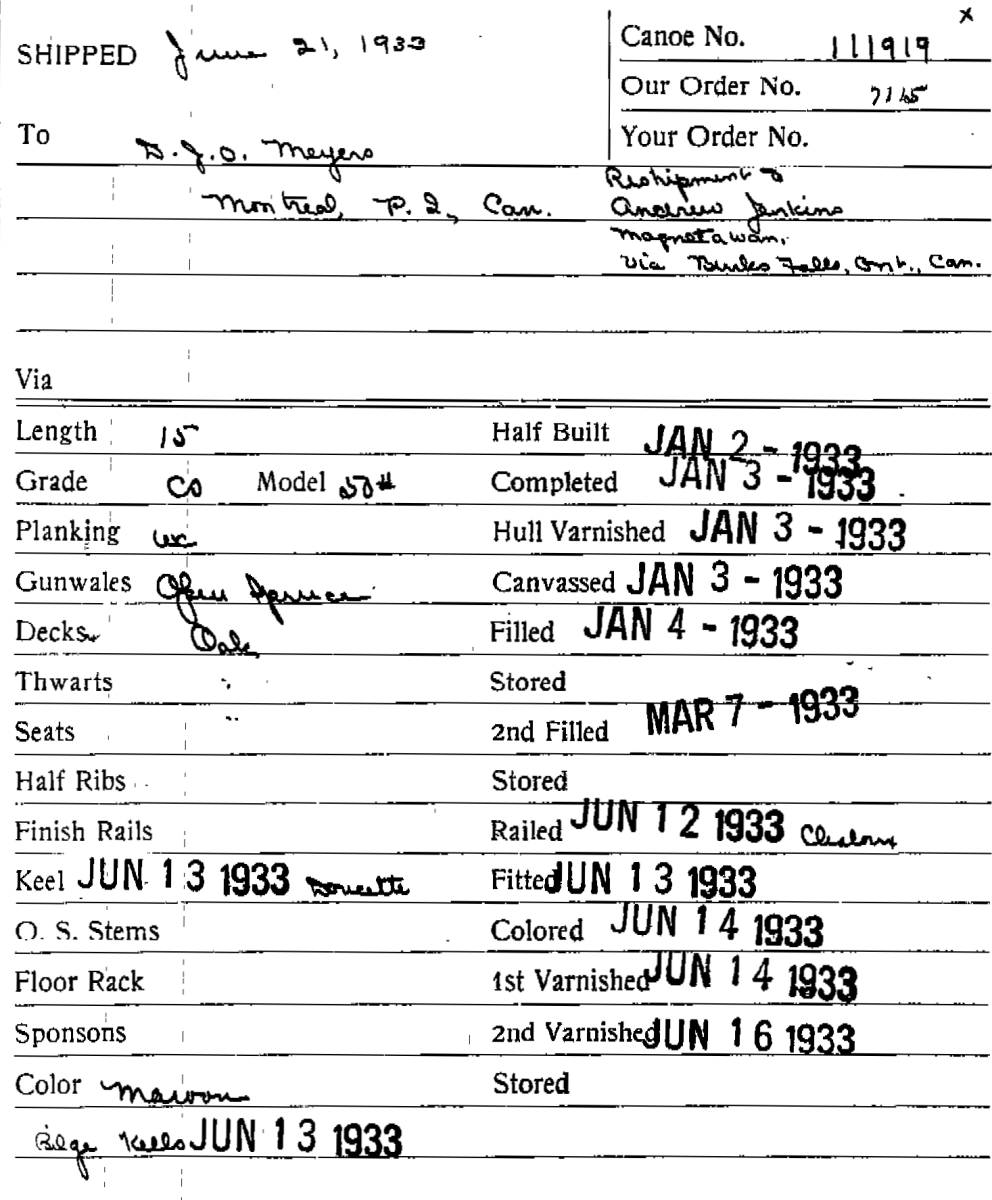 x
SHIPPED June 21, 1933
Canoe No. 111919
Our Order No. 7165
To D. J. O. Meyers
Your Order No.
Montreal, P. Q., Can.
Reshipment to
Andrew Jenkins
Magnetawan,
Via Burks Falls, Ont., Can.
Via
Length 15 Half Built JAN 2 - 1933
Grade CS Model 50# Completed JAN 3 - 1933
Planking wc Hull Varnished JAN 3 - 1933
Gunwales Open Spruce Canvassed JAN 3 - 1933
Decks Oak Filled JAN 4 - 1933
Thwarts " Stored
Seats " 2nd Filled MAR 7 - 1933
Half Ribs Stored
Finish Rails Railed JUN 12 1933
Keel JUN 13 1933 Doucette Fitted JUN 13 1933
O. S. Stems Colored JUN 14 1933
Floor Rack 1st Varnished JUN 14 1933
Sponsons 2nd Varnished JUN 16 1933
Color Maroon Stored
Bilge Keels JUN 13 1933